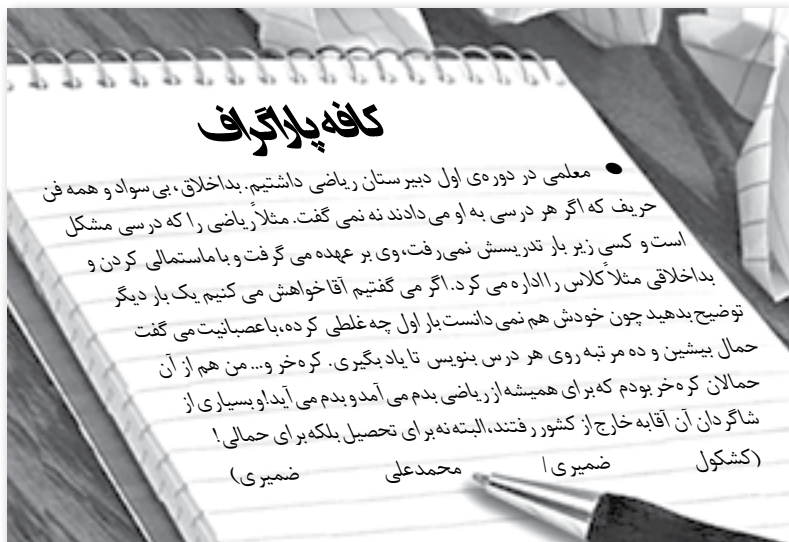 کافه پاراگراف
● معلمی در دوره‌ی اول دبیرستان ریاضی داشتیم. بداخلاق، بی‌سواد و همه فن
حریف که اگر هر درسی به او می‌دادند نه نمی گفت. مثلاً ریاضی را که درسی مشکل
است و کسی زیر بار تدریسش نمی‌رفت، وی بر عهده می گرفت و با ماستمالی کردن و
بداخلاقی مثلاً کلاس را اداره می کرد. اگر می گفتیم آقا خواهش می کنیم یک بار دیگر
توضیح بدهید چون خودش هم نمی دانست بار اول چه غلطی کرده، باعصبانیت می گفت
حمال بیشین و ده مرتبه روی هر درس بنویس تا یاد بگیری. کره‌خر و... من هم از آن
حمالان کره‌خر بودم که برای همیشه از ریاضی بدم می آمد و بدم می آید او بسیاری از
شاگردان آن آقا به خارج از کشور رفتند، البته نه برای تحصیل بلکه برای حمالی!
(کشکول ضمیری / محمدعلی ضمیری)